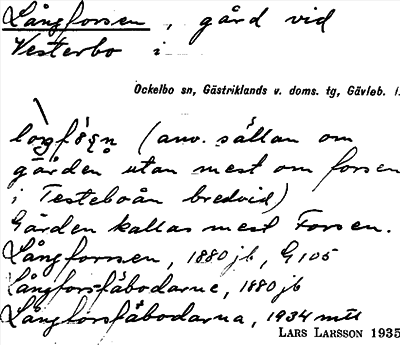 Långforsen, gård vid
Vesterbo i
Ockelbo sn, Gästriklands v. doms. tg, Gävleb. l.
(anv. sällan om
gården utan mest om forsen
i Testeboån bredvid)
Gården kallas mest Forsen.
Långforrsen, 1880 jb, G 105
Långforsfäbodarne, 1880 jb
Långforsfäbodarna, 1934 mtl
LARS LARSSON 1935